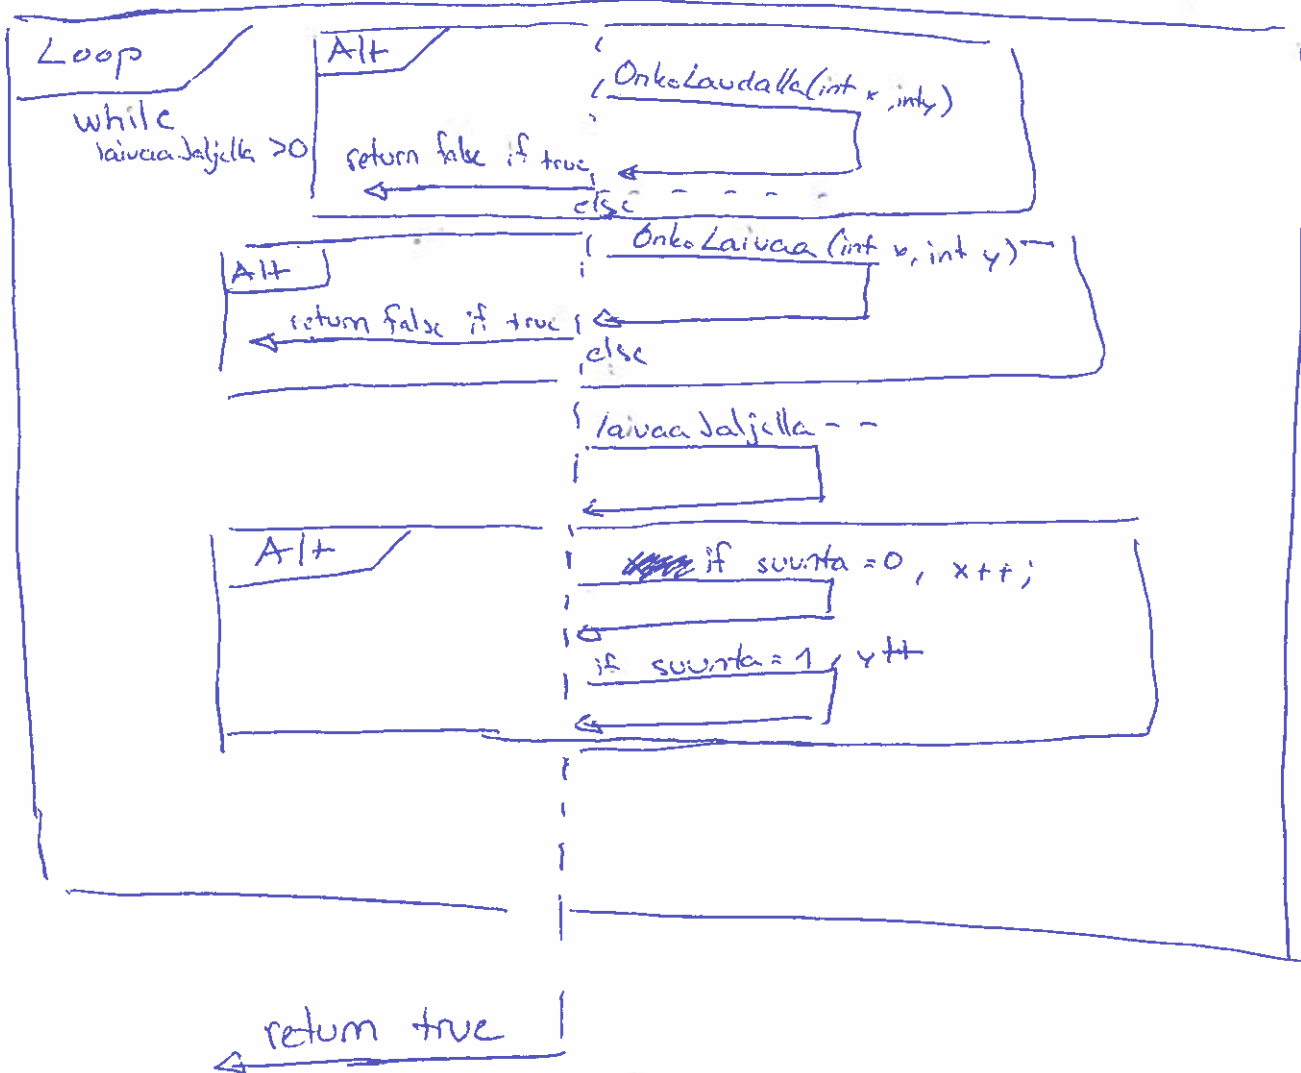 Loop
while
laivaaJaljella >0
Alt
OnkoLaudalla(int x, int y)
return false if true
else
Alt
OnkoLaivaa (int x, int y)
return false if true
else
laivaaJaljella--
Alt
if suunta=0, x++;
if suunta=1, y++
return true